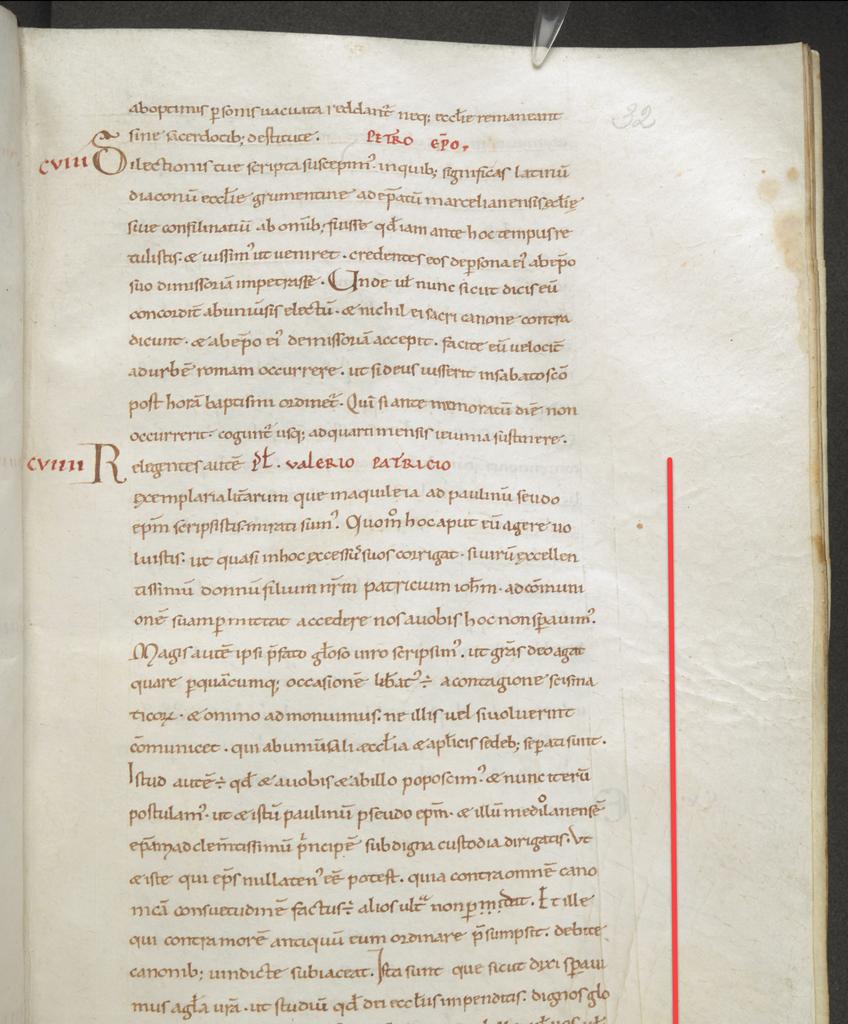 aboptimis ꝑsonis uacuata reddant᷑ neq; ecclie remaneant
32
sine sacerdotib; destitute. PETRO EP̄O.
CVIII Dilectionis tue scripta suscepim᾽. inquib; significas latinū
diaconū ecclie grumentine adep̄atū marcelianensis ecclie
siue consilinatiū ab omib; fuisse qd̄ iam ante hoc tempus re
tulistis. & iussim᾽ ut ueniret. credentes eos depersona ei᾽ abep̄o
suo dimissoriā impetrasse. Unde ut nunc sicut dicis eū
concordit᷑ abuniūsis electū. & nichil ei sacri canone contra
dicunt. & abep̄o ei᾽ demissoriā accepit. facite eū uelocit᷑
adurbē romam occurrere. ut si deus iusserit insabato scō
post horā baptismi ordinet᷑. Qui si ante memoratū diē non
occurrerit. cogunt᷑ usq; adquarti mensis ieiunia sustinere.
CVIIII Relegentes autē PĹ. VALERIO PATRICIO
exemplaria litt̄arum que maquileia ad paulinū seudo
ep̄m scripsistis. mirati sum᾽. Quom̊ hoc aput eū agere uo
luistis. ut quasi inhoc excessū suos corrigat. si uirū excellen
tissimū domnū filium nr̄m patricium ioh̄m. adcōmuni
onē suam ꝑmittat accedere nos auobis hoc non sꝑauim᾽.
Magis autē ipsi p̄fato gl̄oso uiro scripsim᾽. ut gr̄as deo agat
quare ꝑquācumq; occasionē lib̄at᾽ ÷ acontagione scisma
ticoꝝ. & omino admonuimus. ne illis uel si uoluerint
cōmunicet. qui abuniūsali ecclia & aplicis sedeb; sepati sunt.
Istud autē ÷ qd̄ & auobis & abillo poposcim᾽. & nunc iterū
postulam᾽. ut & istū paulinū pseudo ep̄m. & illū mediolanensē
ep̄m adclem̄tissimū p̄ncipē sub digna custodia dirigatis. Vt
& iste qui ep̄s nullaten᾽ eē potest. quia contra omnē cano
nicā consuetudinē factus ÷ alios ult᷑ non ꝑdat. Et ille
qui contra morē antiquū eum ordinare p̄sumpsit. debite
canonib; uindicte subiaceat. Ista sunt que sicut dixi sꝑaui
mus agl̄a ur̄a. ut studiū qd̄ dei eccliis impenditis. dignos glo